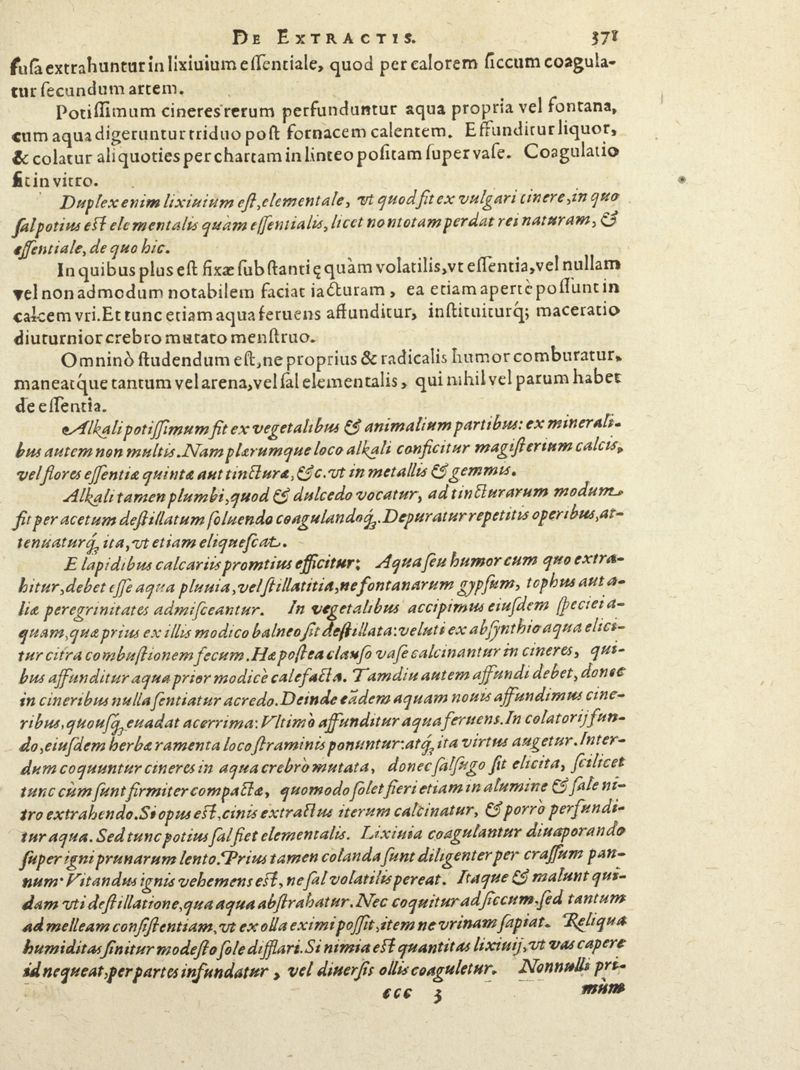 De Extractis. 371
fusa extrahuntur in lixiuium essentiale, quod per calorem siccum coagula-
tur secundum artem.
Potissimum cineres rerum perfunduntur aqua propria vel fontana,
cum aqua digeruntur triduo post fornacem calentem. Effunditur liquor,
& colatur aliquoties per chartam in linteo positam super vase. Coagulatio
fit in vitro.
Duplex enim lixiuium est, elementale, vt quod fit ex vulgari cinere, in quo
sal potius est elementalis quàm essentialis, licet no ntotam perdat rei naturam, &
essentiale, de quo hic.
In quibus plus est fixæ substantię quàm volatilis, vt essentia, vel nullam
vel non admodum notabilem faciat iacturam, ea etiam apertè possunt in
calcem vri. Et tunc etiam aqua feruens affunditur, instituiturq; maceratio
diuturnior crebro mutato menstruo.
Omninò studendum est, ne proprius & radicalis humor comburatur,
maneatque tantum vel arena, vel sal elementalis, qui nihil vel parum habet
de essentia.
Alkali potissimum fit ex vegetalibus & animalium partibus: ex minerali-
bus autem non multis. Nam plærumque loco alkali conficitur magisterium calcis,
vel flores essentiæ quintæ aut tincturæ, &c. vt in metallis & gemmis.
Alkali tamen plumbi, quod & dulcedo vocatur, ad tincturarum modum
fit per acetum destillatum soluendo coagulandoq;. Depuratur repetitis operibus, at-
tenuaturq; ita, vt etiam eliquescat.
E lapidibus calcariis promtius efficitur; Aqua seu humor cum quo extra-
hitur, debet esse aqua pluuia, vel stillatitia, ne fontanarum gypsum, tophus aut a-
liæ peregrinitates admisceantur. In vegetalibus accipimus eiusdem speciei a-
quam, quæ prius ex illis modico balneo fit destillata: veluti ex absynthio aqua elici-
tur citra combustionem fecum. Hæ postea clauso vase calcinantur in cineres, qui-
bus affunditur aqua prior modicè calefacta. Tamdiu autem affundi debet, donec
in cineribus nulla sentiatur acredo. Deinde eādem aquam nouis affundimus cine-
ribus, quousq; euadat acerrima: Vltimò affunditur aqua feruens. In colatorij fun-
do, eiusdem herbæ ramenta loco straminis ponuntur: atq; ita virtus augetur. Inter-
dum coquuntur cineres in aqua crebrò mutata, donec salsugo sit elicita, scilicet
tunc cùm sunt firmiter compacta, quomodo solet fieri etiam in alumine & sale ni-
tro extrahendo. Si opus est, cinis extractus iterum calcinatur, & porrò perfundi-
tur aqua. Sed tunc potius sal fiet elementalis. Lixiuia coagulantur diuaporando
super igni prunarum lento. Prius tamen colanda sunt diligenter per crassum pan-
num: Vitandus ignis vehemens est, ne sal volatilis pereat. Itaque & malunt qui-
dam vti destillatione, qua aqua abstrahatur. Nec coquitur ad siccum, sed tantum
ad melleam consistentiam, vt ex olla eximi possit, item ne vrinam sapiat. Reliqua
humiditas sinitur modesto sole difflari. Si nimia est quantitas lixiuij, vt vas capere
id nequeat, per partes infundatur, vel diuersis ollis coaguletur. Nonnulli pri-
ccc 3 mùm